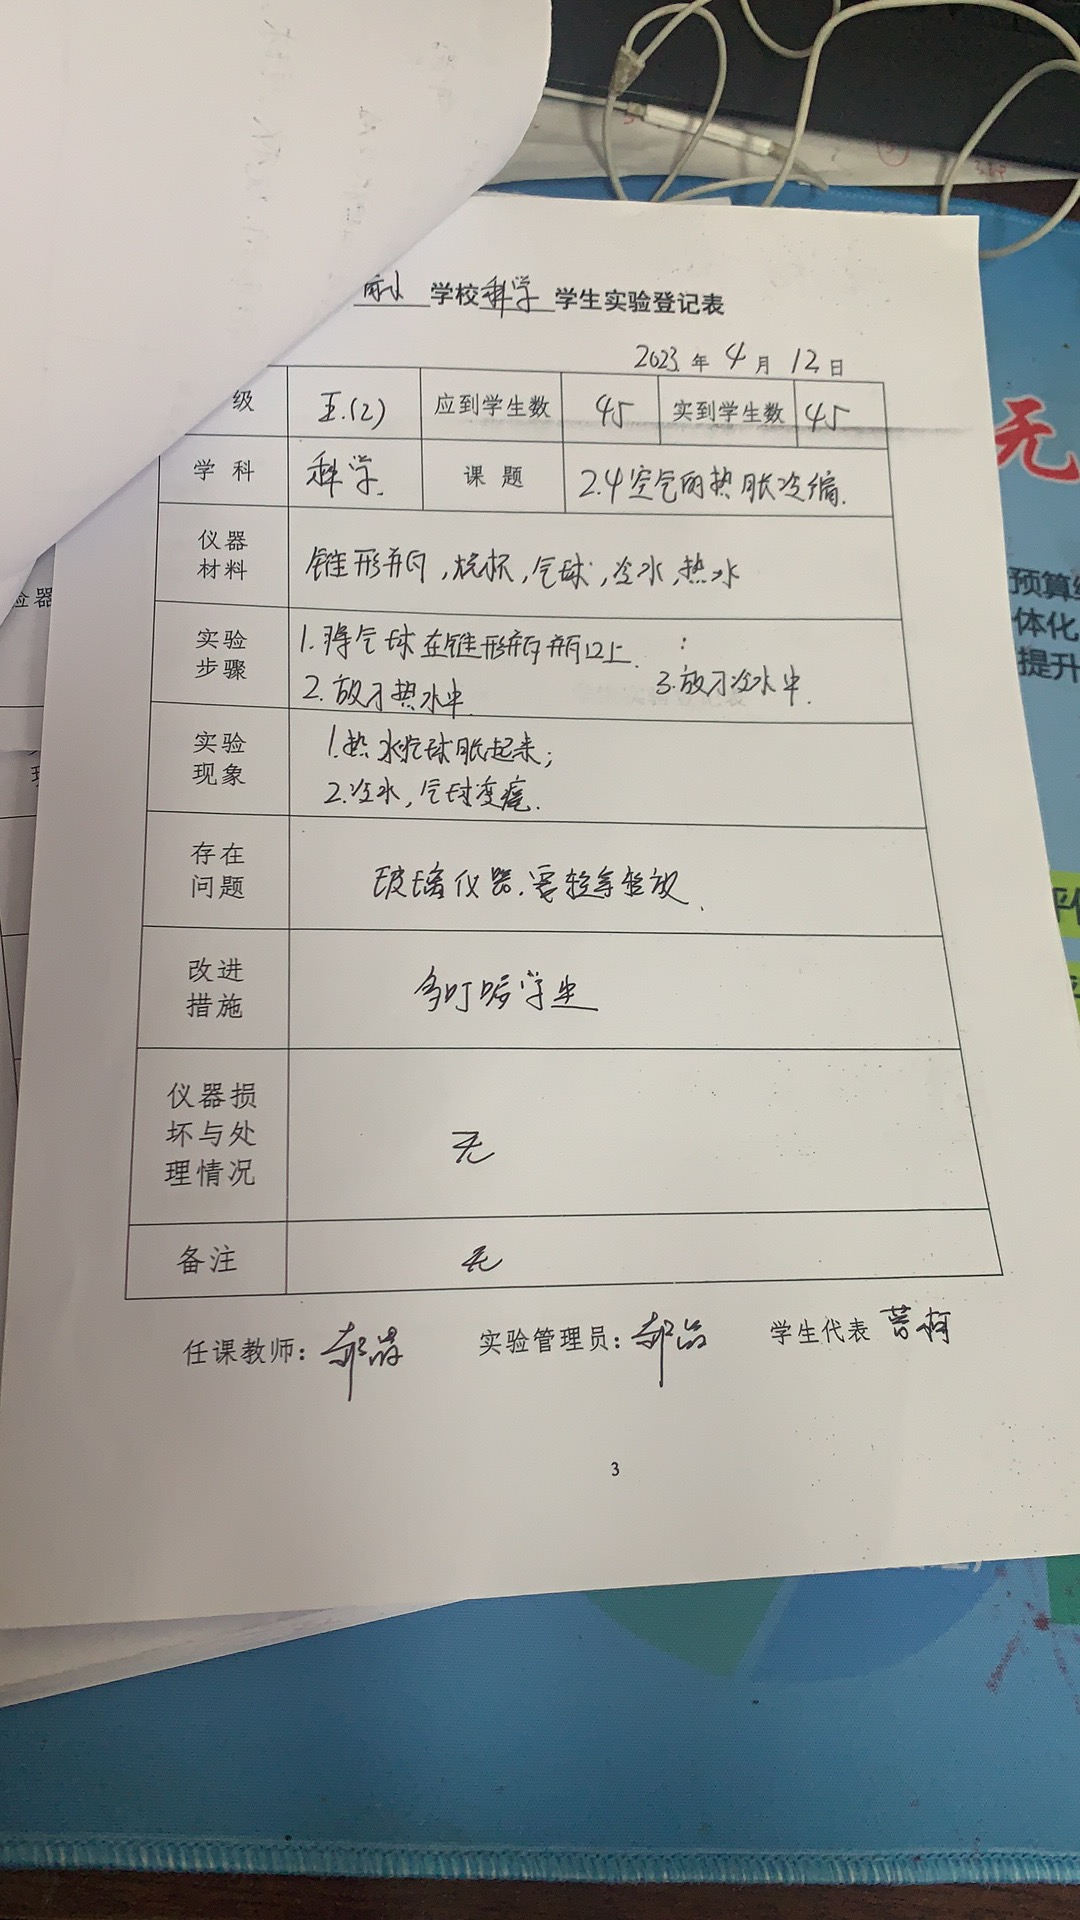 学校 科学 学生实验登记表
2023 年 4 月 12 日
级 五.(2) 应到学生数 45 实到学生数 45
学 科 科学. 课 题 2.4空气的热胀冷缩.
仪器
材料
锥形瓶,烧杯,气球,冷水,热水
实验
步骤
1.将气球在锥形瓶瓶口上.
2.放于热水中.
3.放于冷水中.
实验
现象
1.热水气球胀起来;
2.冷水,气球变瘪.
存在
问题
玻璃仪器.要轻拿轻放.
改进
措施
多叮嘱学生
仪器损
坏与处
理情况
无
备注 无
任课教师: 实验管理员: 学生代表
3
无
预算
体化
提升